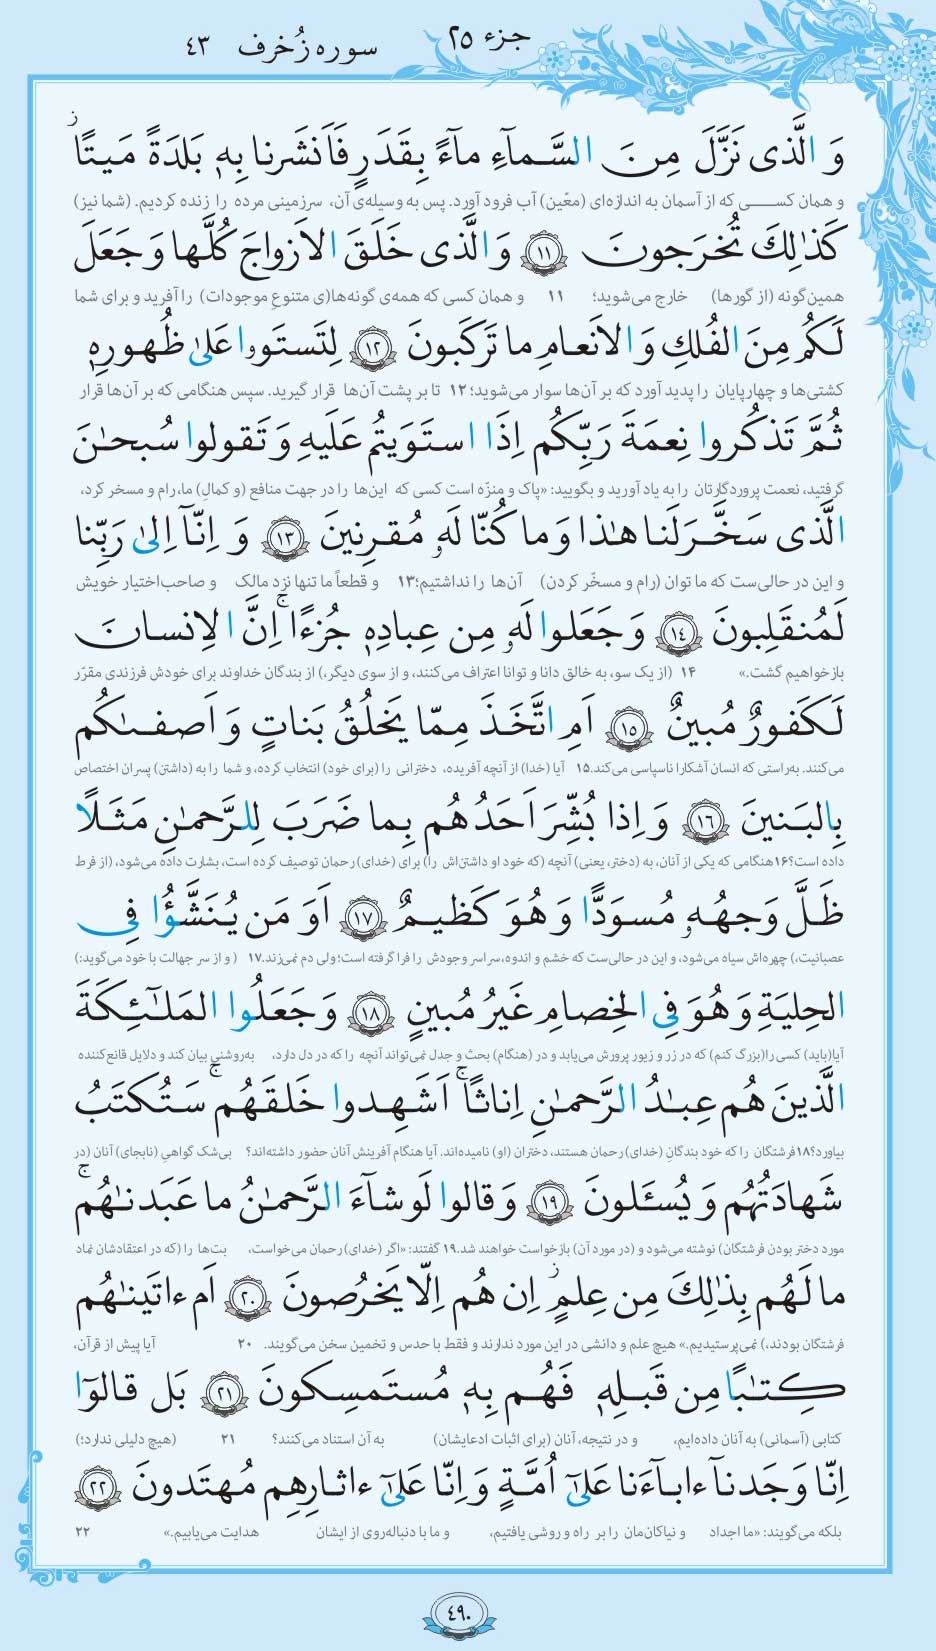 جزء ۲۵
سوره زُخرف ۴۳
وَ الَّذی نَزَّلَ مِنَ السَّمآءِ مآءً بِقَدَرٍ فَاَنشَرنا بِهٖ بَلدَةً مَیتًا ز
و همان کسی که از آسمان به اندازه‌ای (معیّن) آب فرود آورد. پس به وسیله‌ی آن، سرزمینی مرده را زنده کردیم. (شما نیز)
کَذٰلِكَ تُخرَجونَ ۱۱ وَ الَّذی خَلَقَ الاَزواجَ کُلَّها وَ جَعَلَ
همین‌گونه (از گورها) خارج می‌شوید؛ ۱۱ و همان کسی که همه‌ی گونه‌ها(ی متنوع موجودات) را آفرید و برای شما
لَکُم مِنَ الفُلكِ وَ الاَنعامِ ما تَرکَبونَ ۱۲ لِتَستَوۥا عَلیٰ ظُهورِهٖ
کشتی‌ها و چهارپایان را پدید آورد که بر آن‌ها سوار می‌شوید؛ ۱۲ تا بر پشت آن‌ها قرار گیرید. سپس هنگامی که بر آن‌ها قرار
ثُمَّ تَذکُروا نِعمَةَ رَبِّکُم اِذَا استَوَیتُم عَلَیهِ وَ تَقولوا سُبحٰنَ
گرفتید، نعمت پروردگارتان را به یاد آورید و بگویید: «پاک و منزّه است کسی که این‌ها را در جهت منافع (و کمالِ) ما، رام و مسخر کرد،
الَّذی سَخَّرَ لَنا هٰذا وَ ما کُنّا لَهٗ مُقرِنینَ ۱۳ وَ اِنّآ اِلیٰ رَبِّنا
و این در حالی‌ست که ما توان (رام و مسخّر کردن) آن‌ها را نداشتیم؛ ۱۳ و قطعاً ما تنها نزد مالک و صاحب‌اختیار خویش
لَمُنقَلِبونَ ۱۴ وَ جَعَلوا لَهٗ مِن عِبادِهٖ جُزءًا ۚ اِنَّ الاِنسانَ
بازخواهیم گشت.» ۱۴ (از یک سو، به خالق دانا و توانا اعتراف می‌کنند، و از سوی دیگر،) از بندگان خداوند برای خودش فرزندی مقرّر
لَکَفورٌ مُبینٌ ۱۵ اَمِ اتَّخَذَ مِمّا یَخلُقُ بَناتٍ وَ اَصفٰکُم
می‌کنند. به‌راستی که انسان آشکارا ناسپاسی می‌کند. ۱۵ آیا (خدا) از آنچه آفریده، دخترانی را (برای خود) انتخاب کرده، و شما را به (داشتن) پسران اختصاص
بِالبَنینَ ۱۶ وَ اِذا بُشِّرَ اَحَدُهُم بِما ضَرَبَ لِلرَّحمٰنِ مَثَلًا
داده است؟ ۱۶ هنگامی که یکی از آنان، به (دختر، یعنی) آنچه (که خود او داشتن‌اش را) برای (خدای) رحمان توصیف کرده است، بشارت داده می‌شود، (از فرط
ظَلَّ وَجهُهٗ مُسوَدًّا وَ هُوَ کَظیمٌ ۱۷ اَوَ مَن یُنَشَّؤُا فِی
عصبانیت،) چهره‌اش سیاه می‌شود، و این در حالی‌ست که خشم و اندوه، سراسر وجودش را فرا گرفته است؛ ولی دم نمی‌زند. ۱۷ (و از سر جهالت با خود می‌گوید:)
الحِلیَةِ وَ هُوَ فِی الخِصامِ غَیرُ مُبینٍ ۱۸ وَ جَعَلُوا المَلٰٓئِکَةَ
آیا (باید) کسی را (بزرگ کنم) که در زر و زیور پرورش می‌یابد و در (هنگام) بحث و جدل نمی‌تواند آنچه را که در دل دارد، به‌روشنی بیان کند و دلایل قانع‌کننده
الَّذینَ هُم عِبٰدُ الرَّحمٰنِ اِناثًا ۚ اَشَهِدوا خَلقَهُم ۚ سَتُکتَبُ
بیاورد؟ ۱۸ فرشتگان را که خود بندگانِ (خدای) رحمان هستند، دختران (او) نامیده‌اند. آیا هنگام آفرینش آنان حضور داشته‌اند؟ بی‌شک گواهیِ (نابجای) آنان (در
شَهادَتُهُم وَ یُسئَلونَ ۱۹ وَ قالوا لَو شآءَ الرَّحمٰنُ ما عَبَدنٰهُم ۚ
مورد دختر بودن فرشتگان) نوشته می‌شود و (در مورد آن) بازخواست خواهند شد. ۱۹ گفتند: «اگر (خدای) رحمان می‌خواست، بت‌ها را (که در اعتقادشان نماد
ما لَهُم بِذٰلِكَ مِن عِلمٍ ز اِن هُم اِلّا یَخرُصونَ ۲۰ اَم ءاتَینٰهُم
فرشتگان بودند،) نمی‌پرستیدیم.» هیچ علم و دانشی در این مورد ندارند و فقط با حدس و تخمین سخن می‌گویند. ۲۰ آیا پیش از قرآن،
کِتٰبًا مِن قَبلِهٖ فَهُم بِهٖ مُستَمسِکونَ ۲۱ بَل قالوٓا
کتابی (آسمانی) به آنان داده‌ایم، و در نتیجه، آنان (برای اثبات ادعایشان) به آن استناد می‌کنند؟ ۲۱ (هیچ دلیلی ندارد؛)
اِنّا وَجَدنآ ءابآءَنا عَلیٰٓ اُمَّةٍ وَ اِنّا عَلیٰٓ ءاثارِهِم مُهتَدونَ ۲۲
بلکه می‌گویند: «ما اجداد و نیاکان‌مان را بر راه و روشی یافتیم، و ما با دنباله‌روی از ایشان هدایت می‌یابیم.» ۲۲
۴۹۰